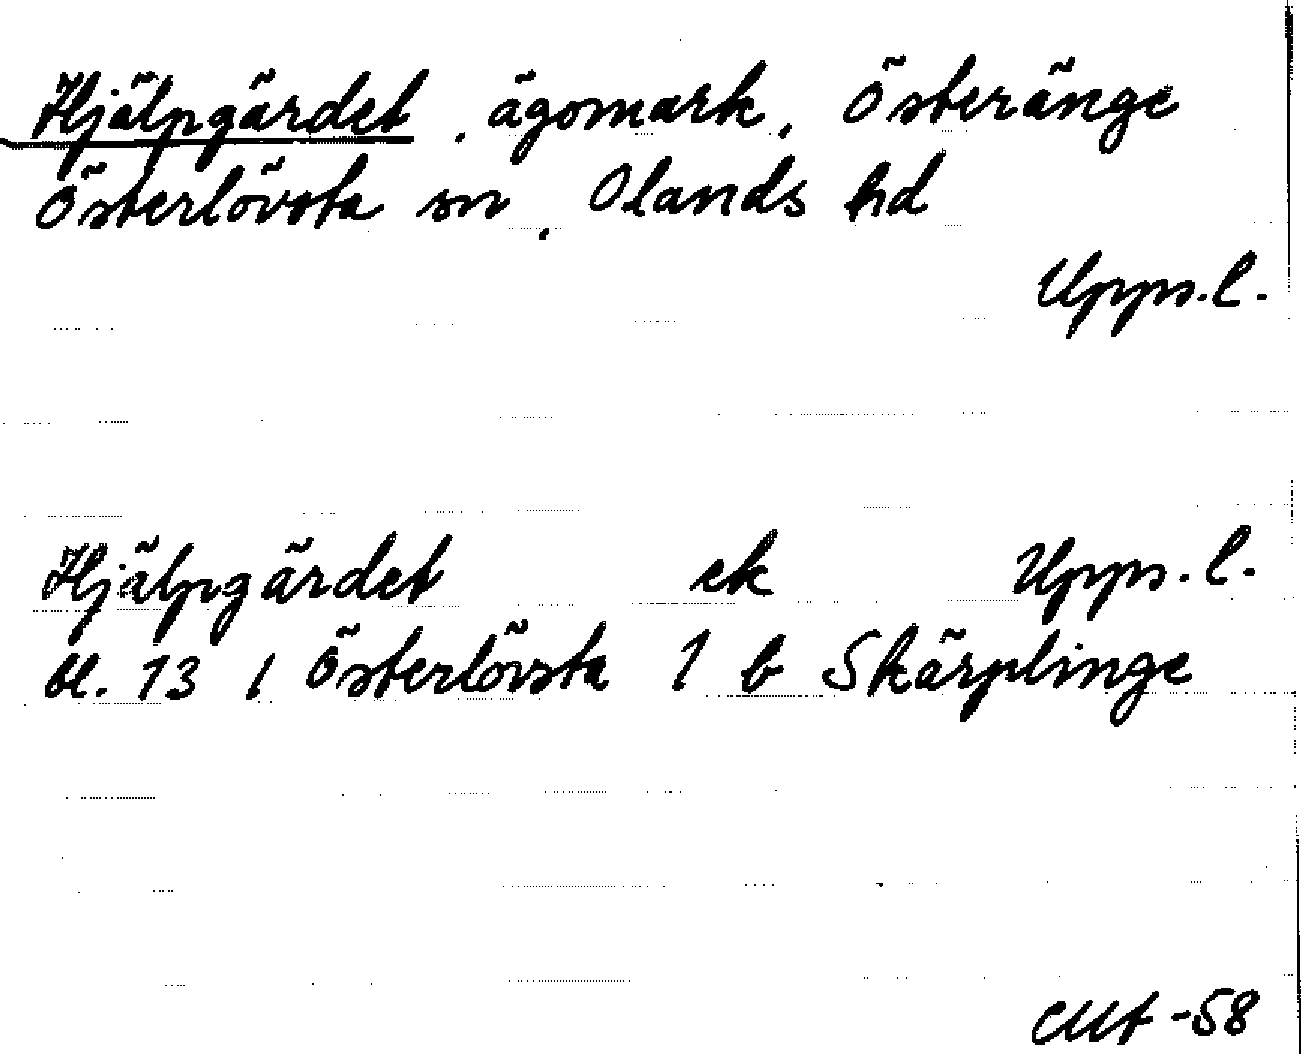 Hjälpgärdet, ägomark, Österänge
Österlövsta sn, Olands hd
Upps.l.
Hjälpgärdet ek Upps.l.
bl. 13 I Österlövsta 1 b Skärplinge
-58